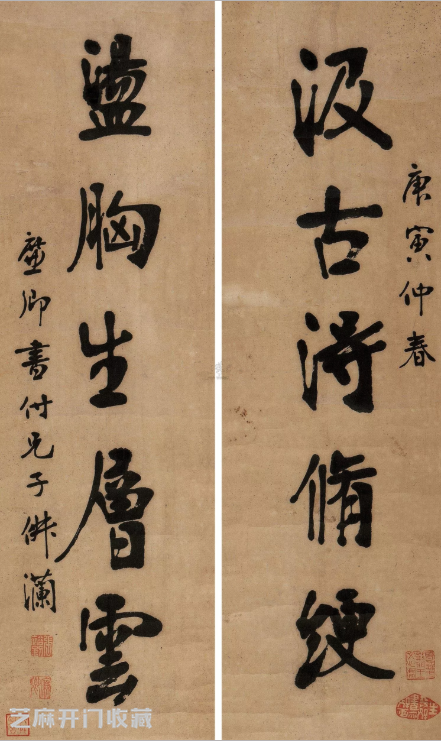 庚寅仲春
汲古得脩綆
盪胸生層雲
廉卿書付兄子瀾
芝麻开门收藏